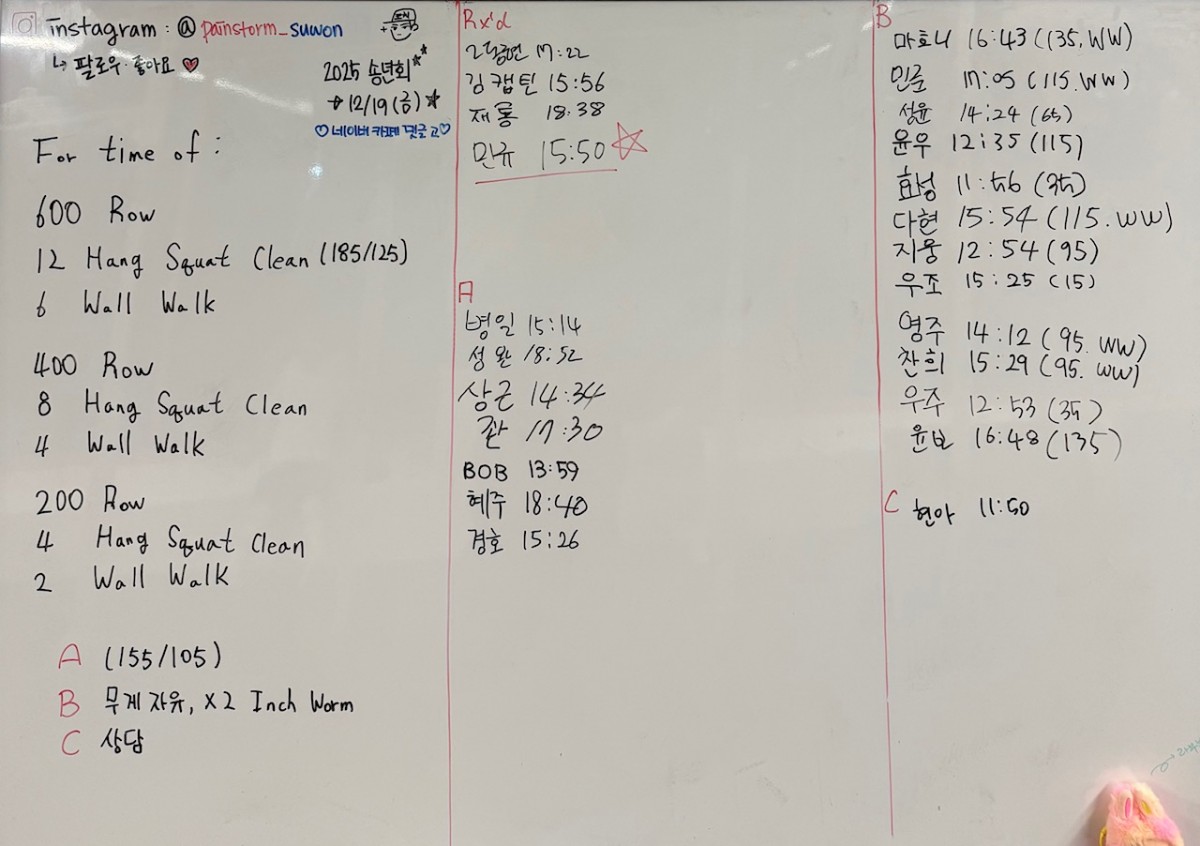 instagram : @ painstorm_suwon
↳ 팔로우·좋아요 ♥
2025 송년회
12/19 (금)
♡ 네이버 카페 댓글 고 ♡
For time of :
600 Row
12 Hang Squat Clean (185/125)
6 Wall Walk
400 Row
8 Hang Squat Clean
4 Wall Walk
200 Row
4 Hang Squat Clean
2 Wall Walk
A (155/105)
B 무게 자유, x2 Inch Worm
C 상담
Rx'd
17:22
김캡틴 15:56
재롱 18:38
민규 15:50
A
병일 15:14
성완 18:52
상근 14:34
관 17:30
BOB 13:59
혜주 18:40
경호 15:26
B
마호니 16:43 (135, WW)
민준 17:05 (115. WW)
성윤 14:24 (65)
윤우 12:35 (115)
효성 11:56 (35)
다현 15:54 (115. WW)
지웅 12:54 (95)
우조 15:25 (15)
영주 14:12 (95. WW)
찬희 15:29 (95. WW)
우주 12:53 (35)
윤보 16:48 (135)
C
현아 11:50